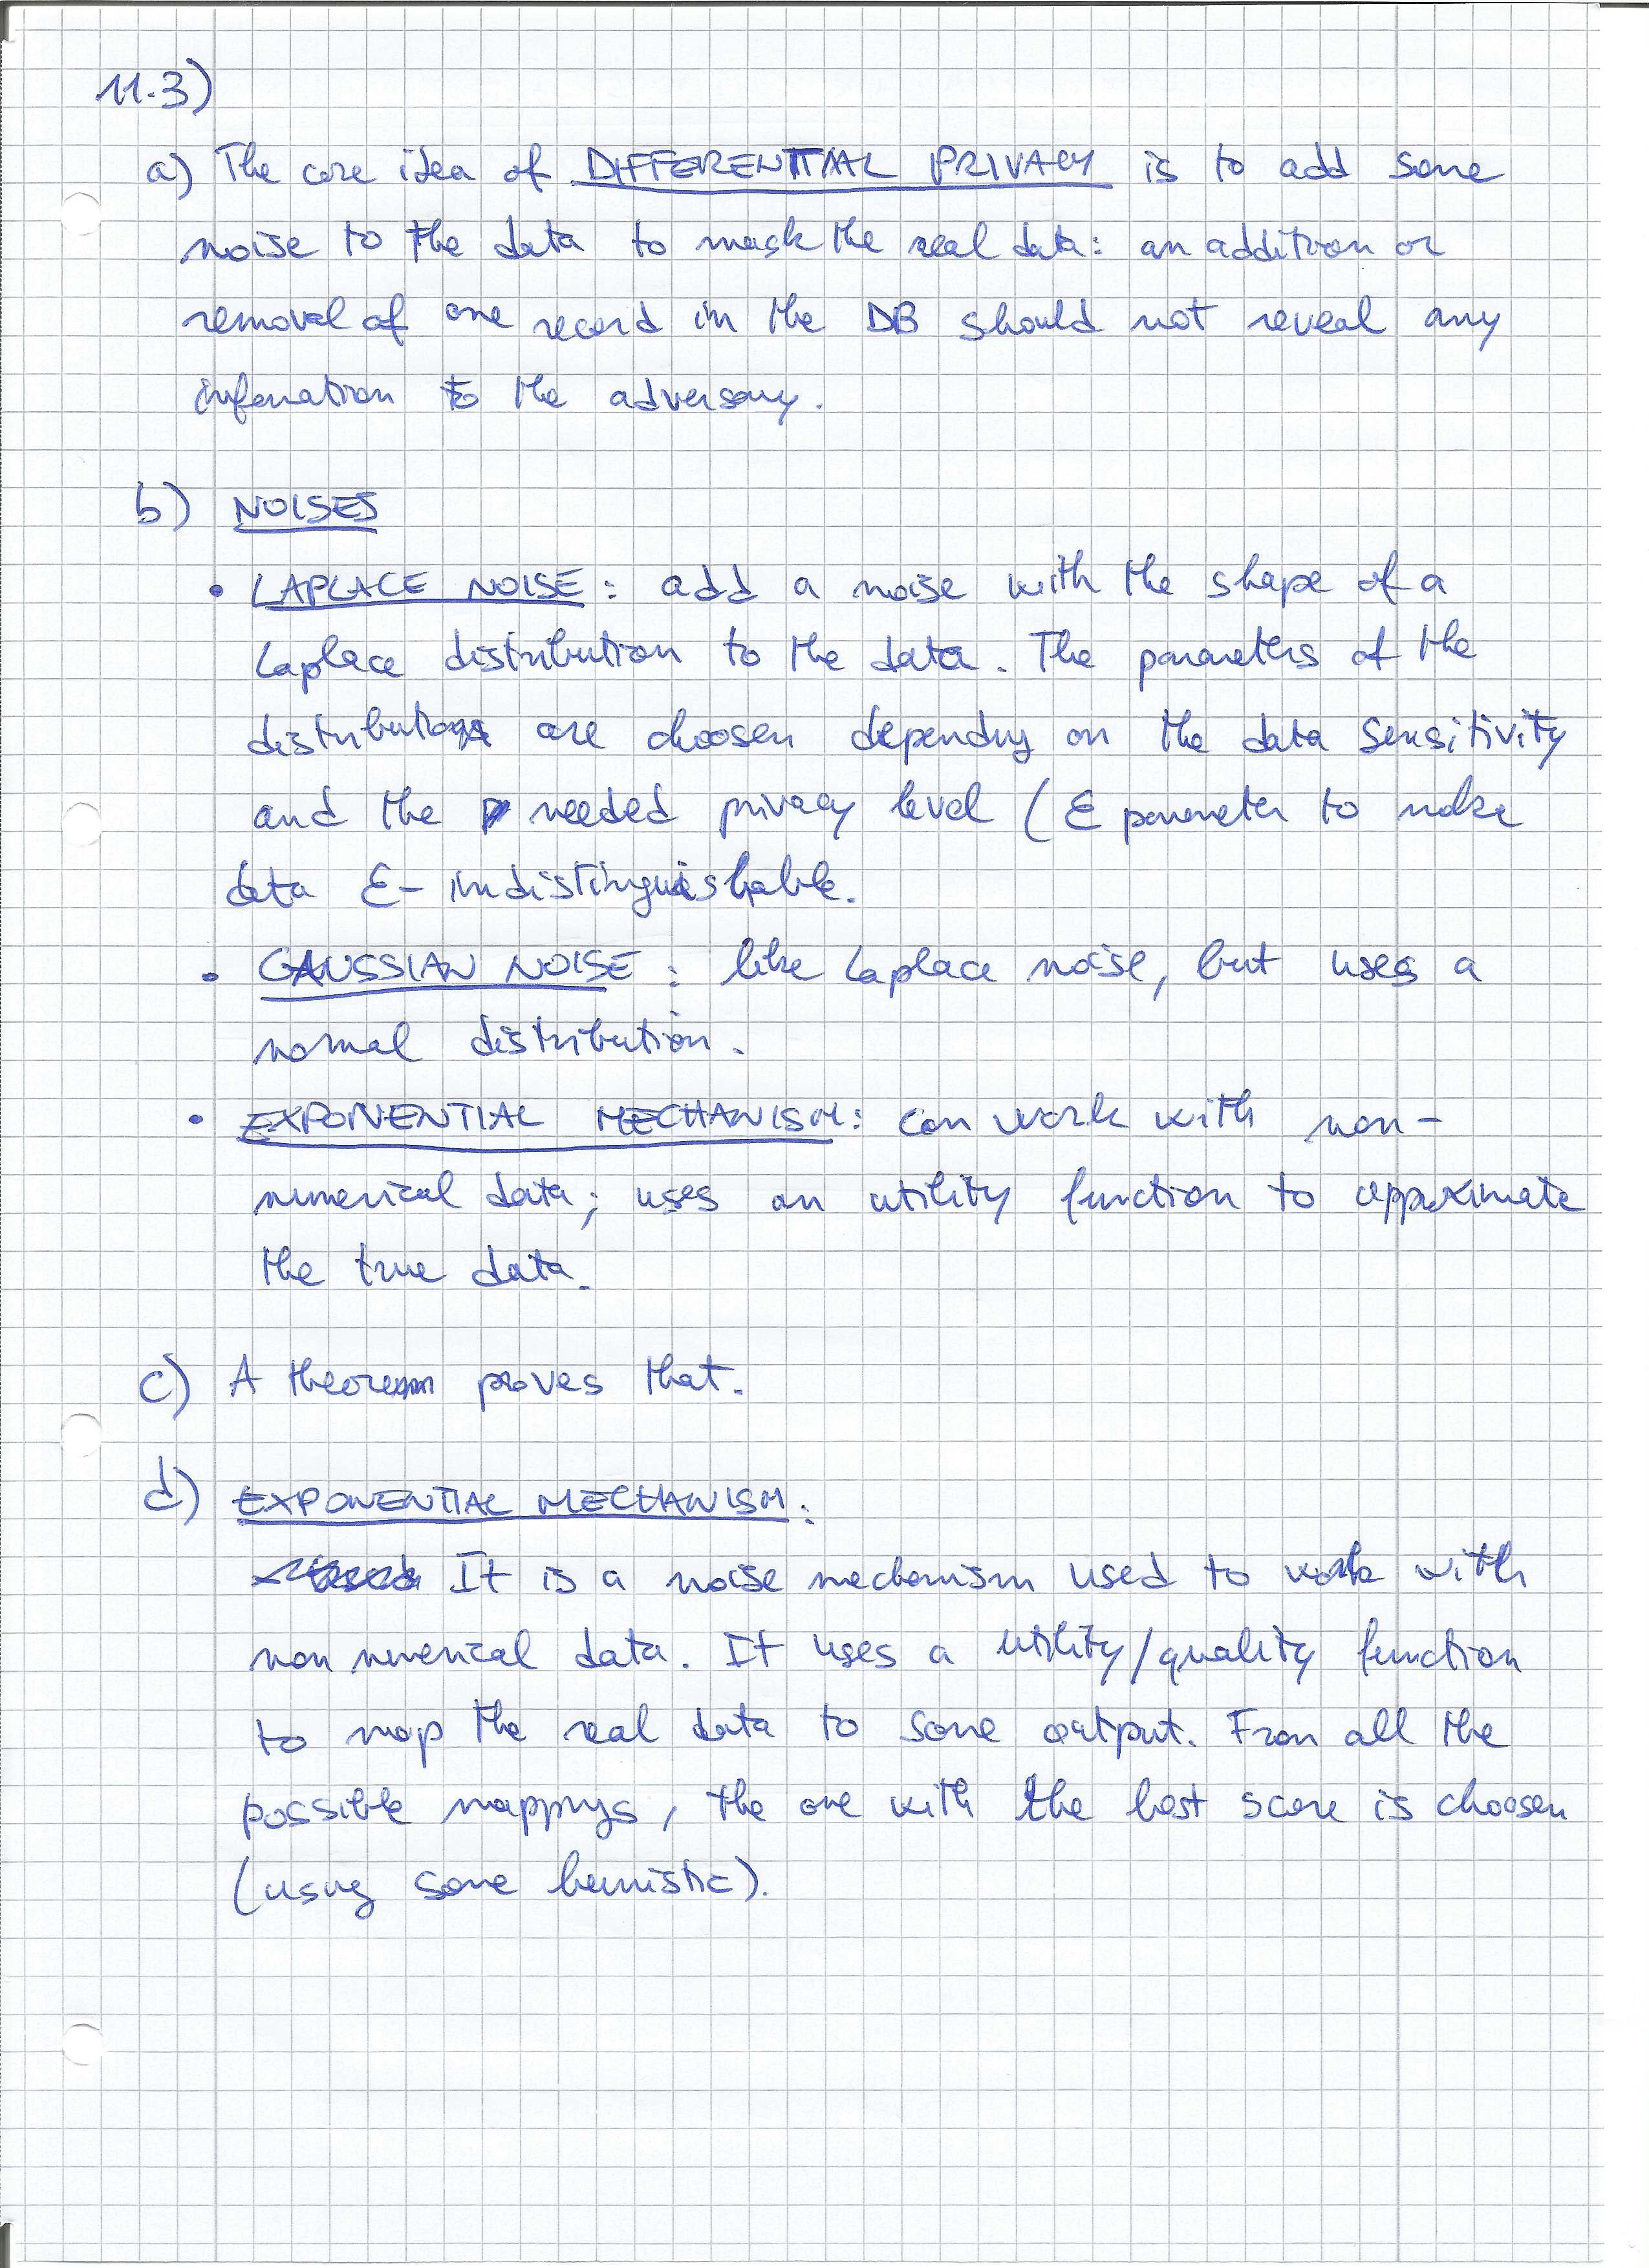 11.3)
a) The core idea of DIFFERENTIAL PRIVACY is to add some
noise to the data to mask the real data: an addition or
removal of one record in the DB should not reveal any
information to the adversary.
b) NOISES
• LAPLACE NOISE: add a noise with the shape of a
Laplace distribution to the data. The parameters of the
distribution are choosen depending on the data sensitivity
and the needed privacy level (ε parameter to make
data ε-indistinguishable.
• GAUSSIAN NOISE: like Laplace noise, but uses a
normal distribution.
• EXPONENTIAL MECHANISM: can work with non-
numerical data; uses an utility function to approximate
the true data.
c) A theorem proves that.
d) EXPONENTIAL MECHANISM:
It is a noise mechanism used to work with
non numerical data. It uses a utility/quality function
to map the real data to some output. From all the
possible mappings, the one with the best score is choosen
(using some heuristic).